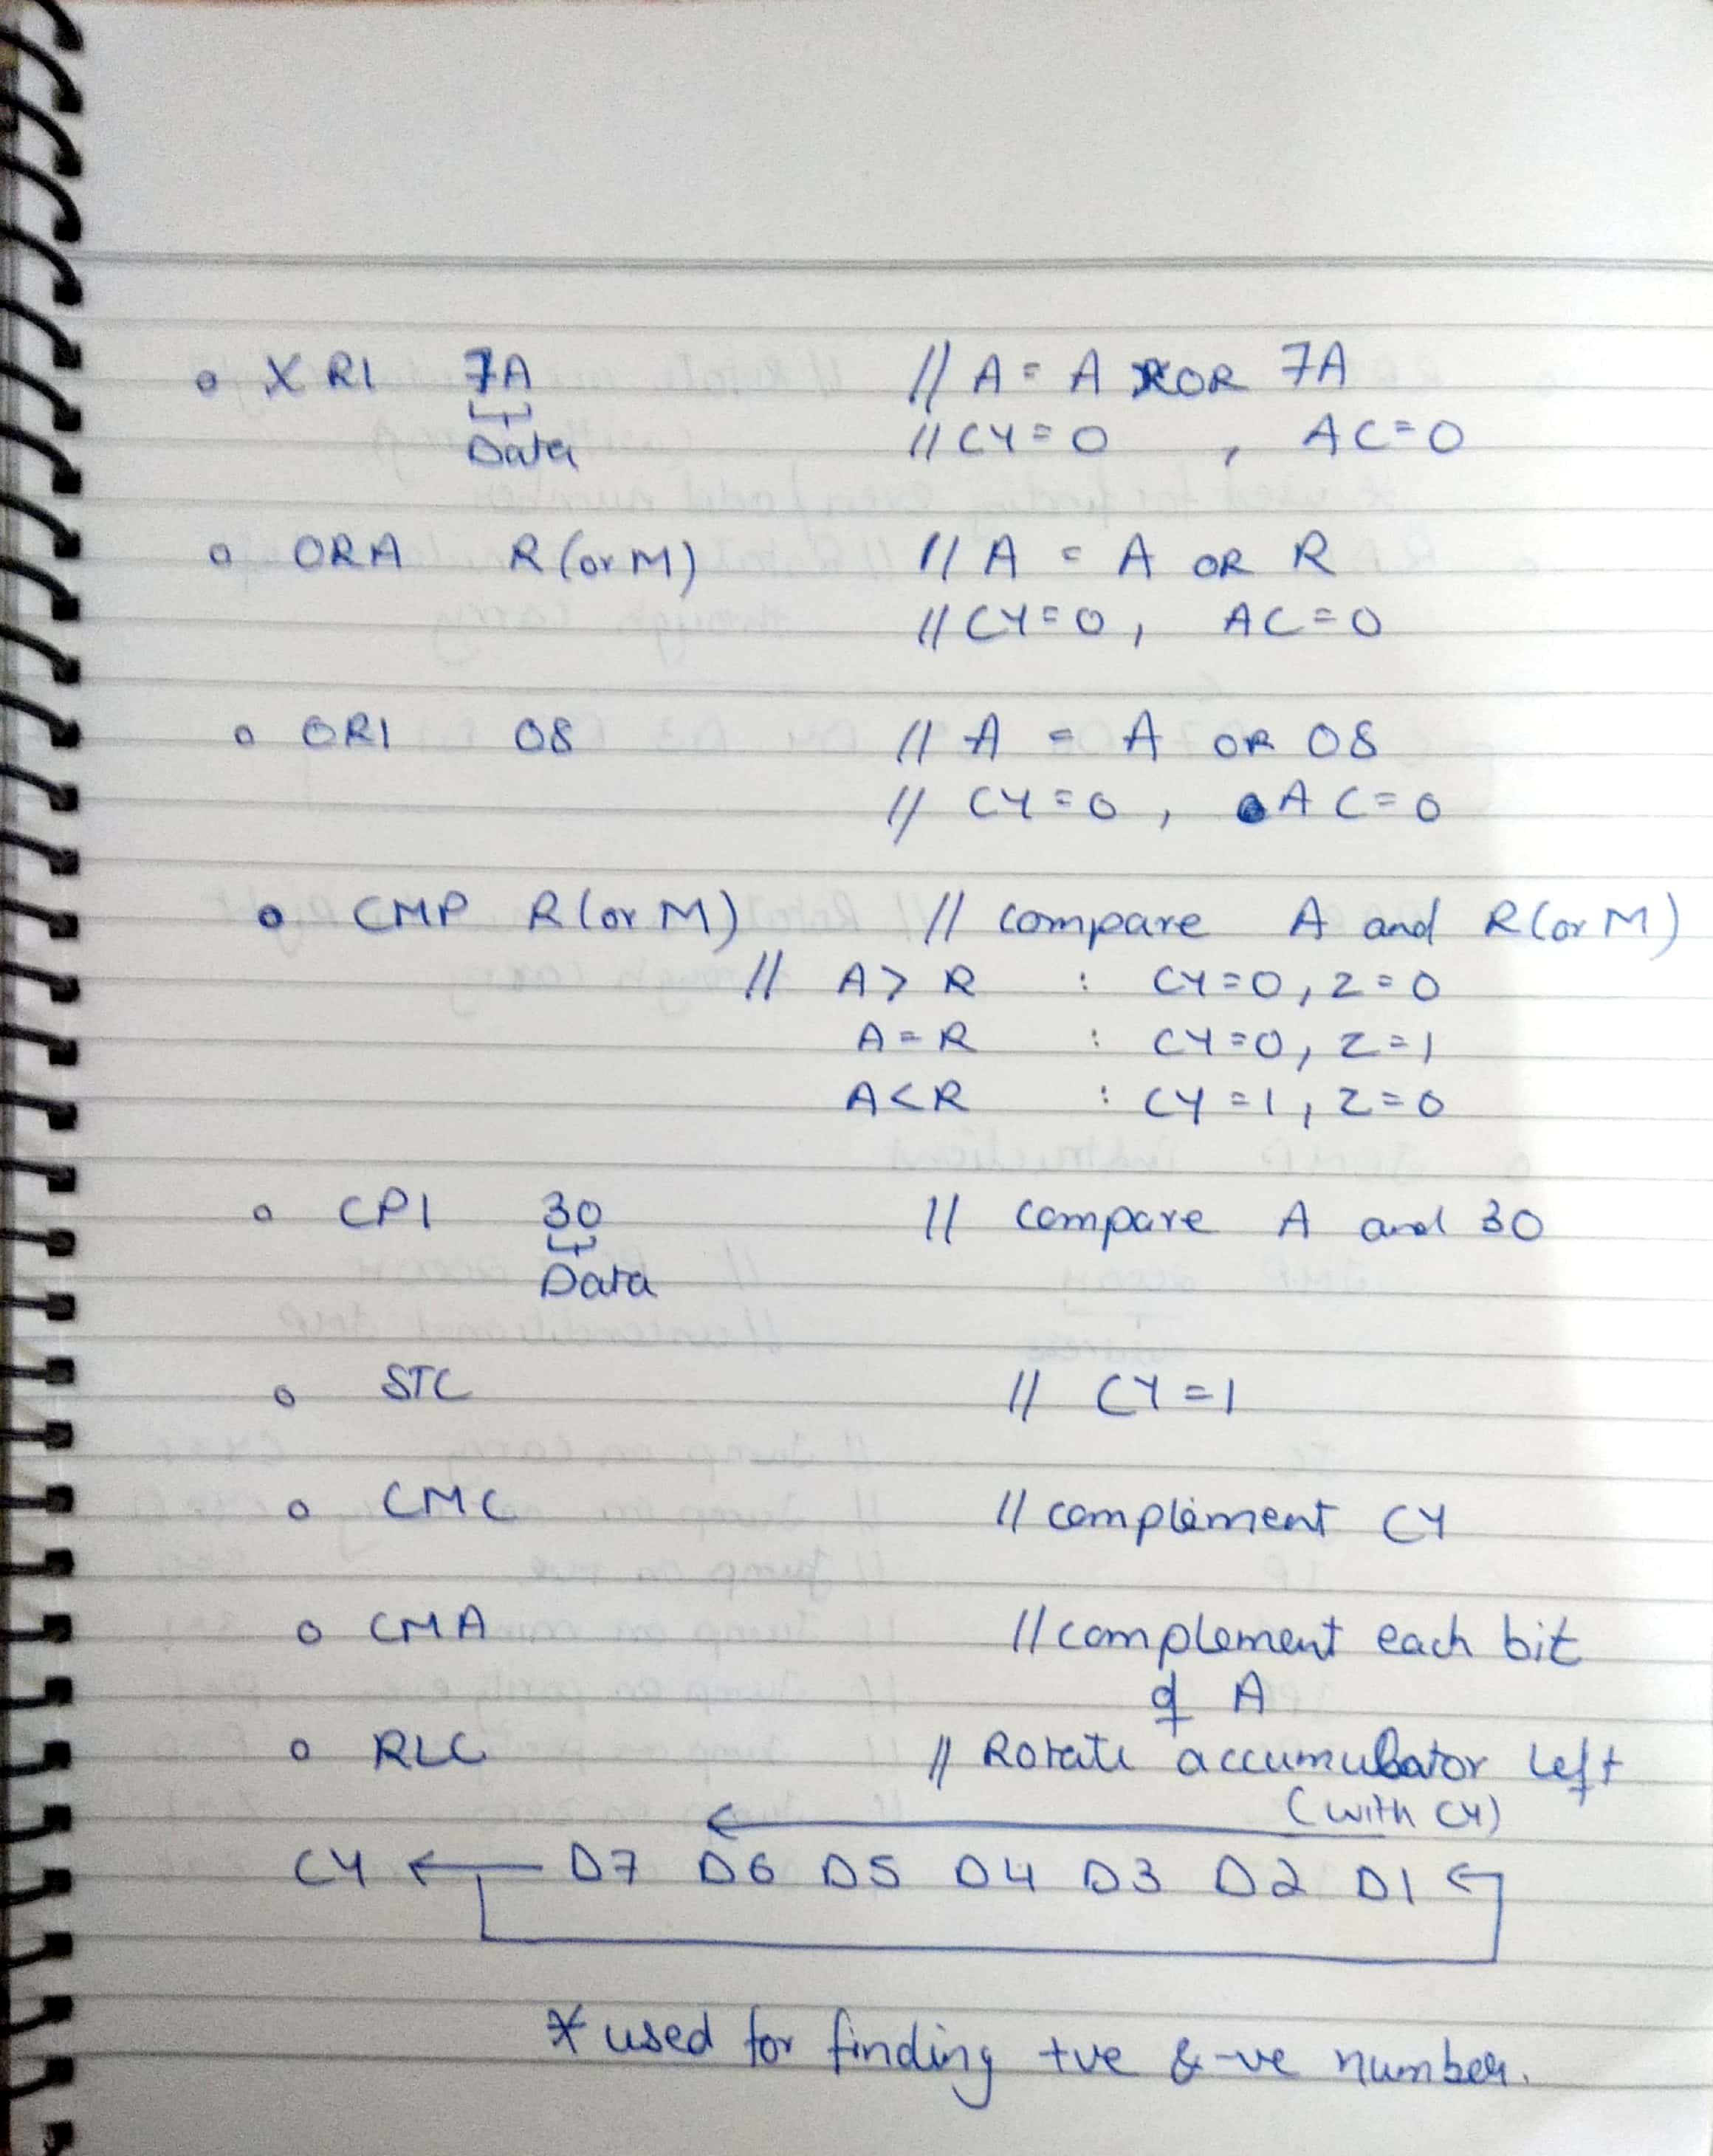 o XRI 7A // A = A XOR 7A
Data // CY=0 , AC=0
o ORA R(or M) // A = A OR R
// CY=0, AC=0
o ORI 08 // A = A OR 08
// CY=0, AC=0
o CMP R(or M) // compare A and R(or M)
// A> R : CY=0, Z=0
A=R : CY=0, Z=1
A<R : CY=1, Z=0
o CPI 30 // compare A and 30
Data
o STC // CY=1
o CMC // complement CY
o CMA // complement each bit
of A
o RLC // Rotate accumulator left
(with CY)
CY ← D7 D6 D5 D4 D3 D2 D1
* used for finding +ve & -ve number.